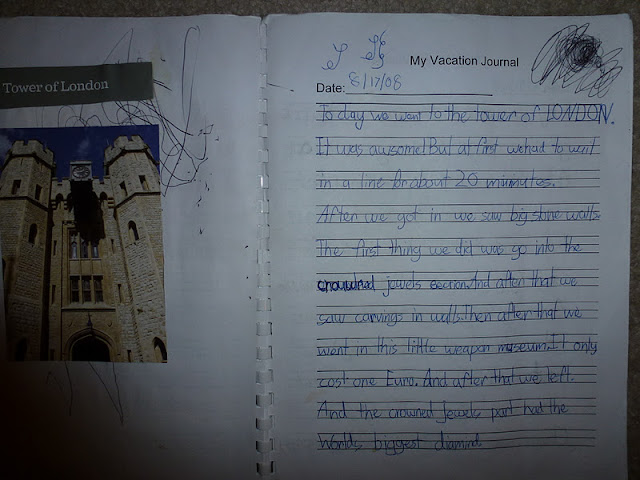 Tower of London
My Vacation Journal
Date: 8/17/08
To day we went to the tower of LONDON.
It was awsome! But at first we had to wait
in a line for about 20 munutes.
After we got in we saw big stone walls.
The first thing we did was go into the
crowned jewels section. And after that we
saw carvings in walls. Then after that we
went in this little weapon museum. It only
cost one Euro. And after that we left.
And the crowned jewels part had the
Worlds biggest diamind